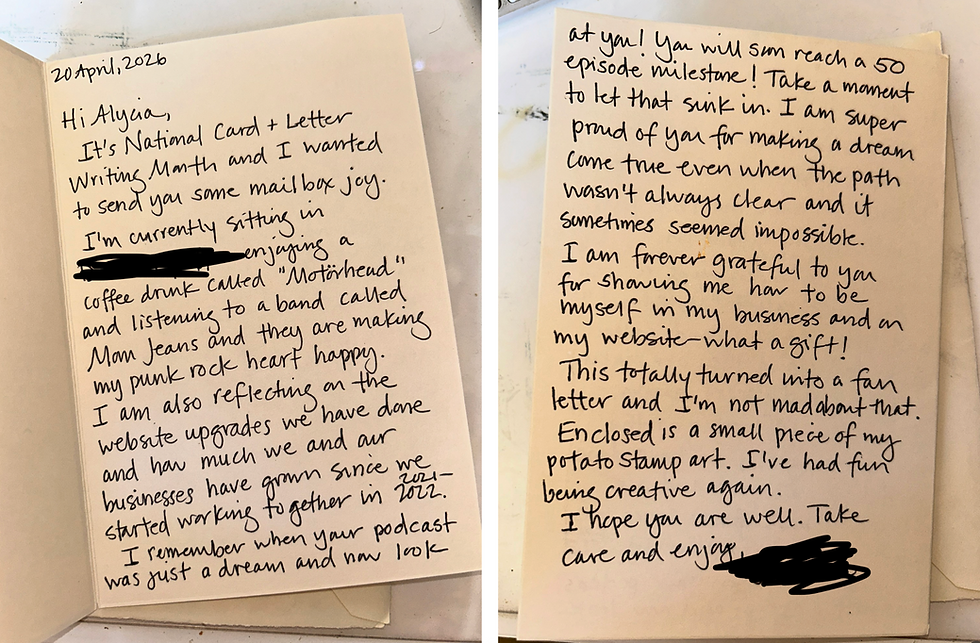 20 April, 2026
Hi Alycia,
It's National Card + Letter
Writing Month and I wanted
to send you some mailbox joy.
I'm currently sitting in
enjoying a
coffee drink called "Motörhead"
and listening to a band called
Mom Jeans and they are making
my punk rock heart happy.
I am also reflecting on the
website upgrades we have done
and how much we and our
businesses have grown since we
started working together in 2021-
2022.
I remember when your podcast
was just a dream and now look
at you! You will soon reach a 50
episode milestone! Take a moment
to let that sink in. I am super
proud of you for making a dream
come true even when the path
wasn't always clear and it
sometimes seemed impossible.
I am forever grateful to you
for showing me how to be
myself in my business and on
my website-what a gift!
This totally turned into a fan
letter and I'm not mad about that.
Enclosed is a small piece of my
potato stamp art. I've had fun
being creative again.
I hope you are well. Take
care and enjoy,